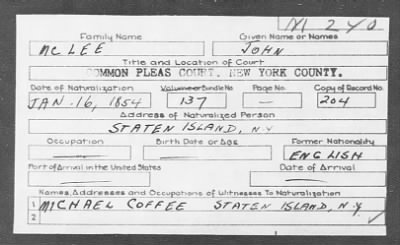 M 240
Family Name Given Name or Names
MC LEE JOHN
Title and Location of Court
COMMON PLEAS COURT, NEW YORK COUNTY.
Date of Naturalization Volume or Bundle No. Page No. Copy of Record No.
JAN. 16, 1854 137 — 204
Address of Naturalized Person
STATEN ISLAND, N.Y.
Occupation Birth Date or Age Former Nationality
— — ENGLISH
Port of Arrival in the United States Date of Arrival
— —
Names, Addresses and Occupations of Witnesses To Naturalization
1 MICHAEL COFFEE STATEN ISLAND, N.Y.
2